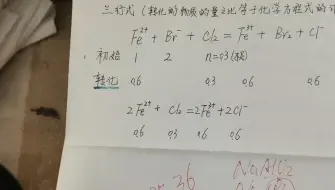 三行式(转化的)物质的量之比等于化学方程式的
Fe²⁺ + Br⁻ + Cl₂ = Fe³⁺ + Br₂ + Cl⁻
初始 1 2 n=0.3(根)
转化 0.6 0.3 0.6 0.6
2Fe²⁺ + Cl₂ = 2Fe³⁺ + 2Cl⁻
0.6 0.3 0.6 0.6
36
NaAlO₂